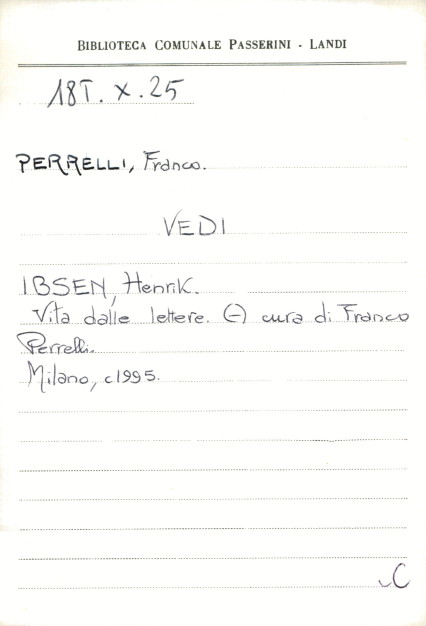 BIBLIOTECA COMUNALE PASSERINI - LANDI
18T. X. 25
PERRELLI, Franco.
VEDI
IBSEN, Henrik.
Vita dalle lettere. (-) cura di Franco
Perrelli.
Milano, c1995.
C